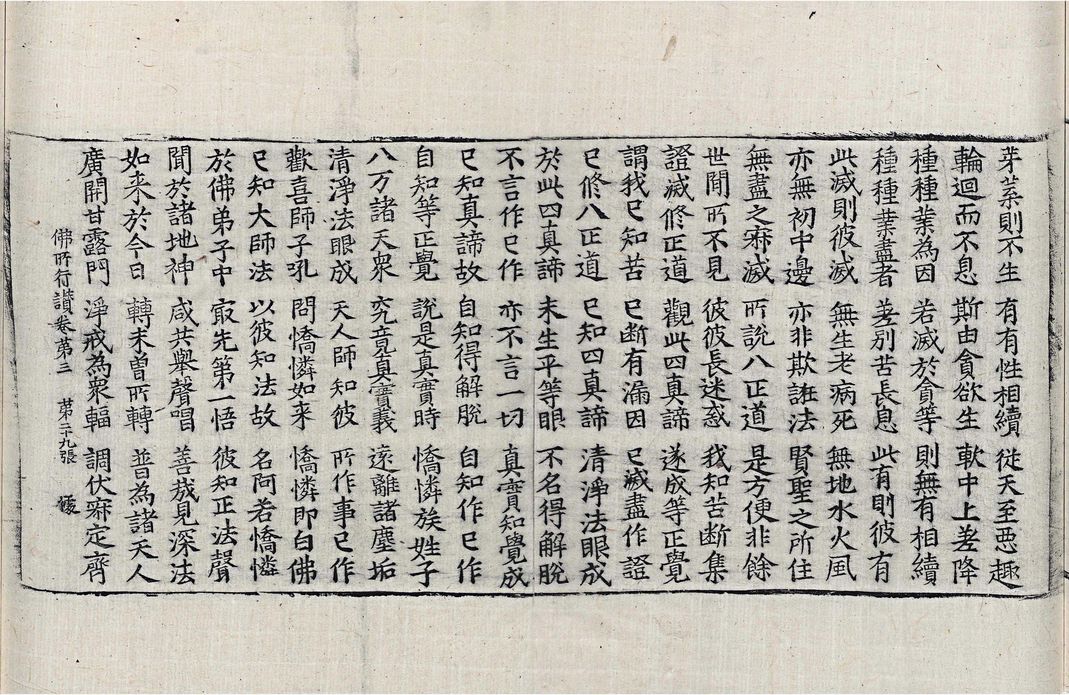 芽葉則不生 有有性相續 從天至惡趣
輪迴而不息 斯由貪欲生 軟中上差降
種種業為因 若滅於貪等 則無有相續
種種業盡者 差別苦長息 此有則彼有
此滅則彼滅 無生老病死 無地水火風
亦無初中邊 亦非欺誑法 賢聖之所住
無盡之寂滅 所說八正道 是方便非餘
世閒所不見 彼彼長迷惑 我知苦斷集
證滅修正道 觀此四真諦 遂成等正覺
謂我已知苦 已斷有漏因 已滅盡作證
已修八正道 已知四真諦 清淨法眼成
於此四真諦 未生平等眼 不名得解脫
不言作已作 亦不言一切 真實知覺成
已知真諦故 自知得解脫 自知作已作
自知等正覺 說是真實時 憍憐族姓子
八万諸天眾 究竟真實義 遠離諸塵垢
清淨法眼成 天人師知彼 所作事已作
歡喜師子吼 問憍憐如來 憍憐即白佛
已知大師法 以彼知法故 名阿若憍憐
於佛弟子中 㝡先第一悟 彼知正法聲
聞於諸地神 咸共舉聲唱 善哉見深法
如来於今日 轉未曾所轉 普為諸天人
廣開甘露門 淨戒為眾輻 調伏寂定齊
佛所行讚卷第三 第二十九張